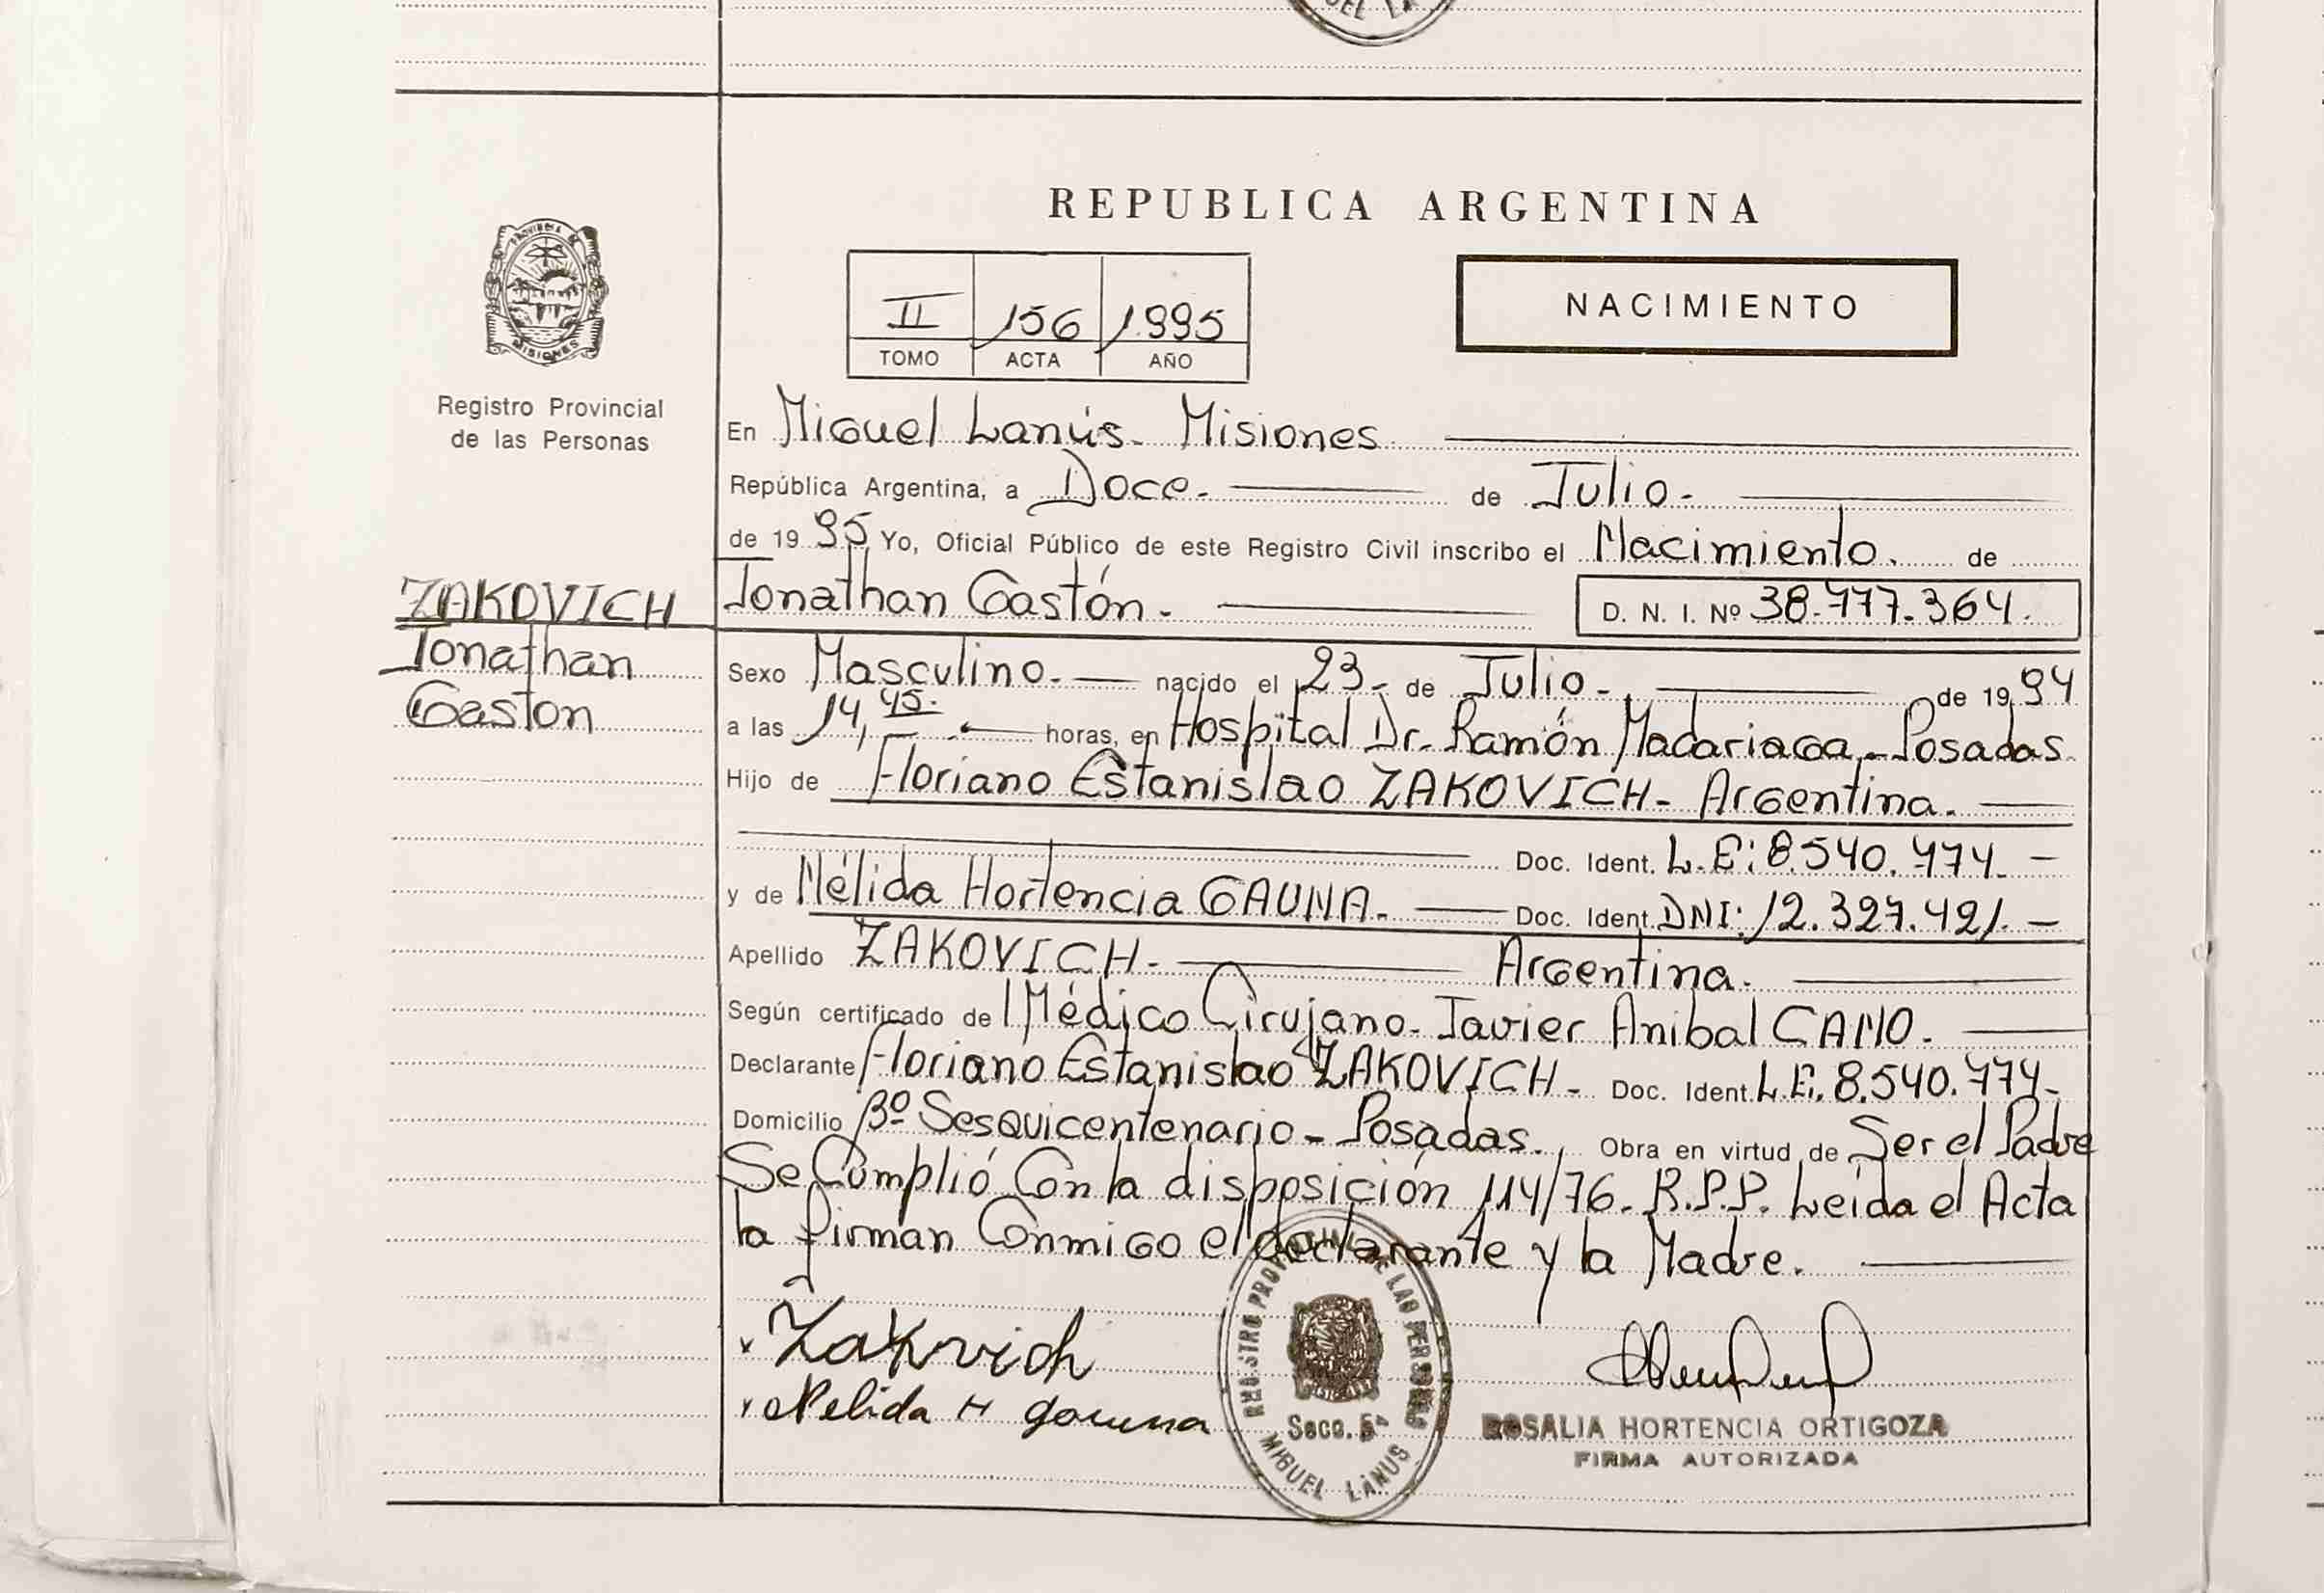 UEL LA
REPUBLICA ARGENTINA
PROVINCIA DE
MISIONES
II 156 1995
TOMO ACTA AÑO
NACIMIENTO
Registro Provincial
de las Personas
En Miguel Lanús. Misiones
República Argentina, a Doce. de Julio.
de 1995 Yo, Oficial Público de este Registro Civil inscribo el Nacimiento. de
ZAKOVICH
Jonathan
Gaston
Jonathan Gastón. D. N. I. Nº 38.777.364.
Sexo Masculino. nacido el 23. de Julio. de 1994
a las 14,45. horas, en Hospital Dr. Ramón Madariaga. Posadas.
Hijo de Floriano Estanislao ZAKOVICH- Argentina.
Doc. Ident. L.E: 8.540.774.
y de Nélida Hortencia GAUNA. Doc. Ident. DNI: 12.327.421.
Apellido ZAKOVICH. Argentina.
Según certificado de Médico Cirujano. Javier Anibal CANO.
Declarante Floriano Estanislao ZAKOVICH- Doc. Ident. L.E. 8.540.774.
Domicilio Bº Sesquicentenario - Posadas. Obra en virtud de Ser el Padre
Se Cumplió Con la disposición 114/76. R.P.P. Leída el Acta
la firman Conmigo el declarante y la Madre.
Zakovich
Nelida H gauna
REGISTRO PROVINCIAL DE LAS PERSONAS
Secc. 5ª
MIGUEL LANUS
ROSALIA HORTENCIA ORTIGOZA
FIRMA AUTORIZADA